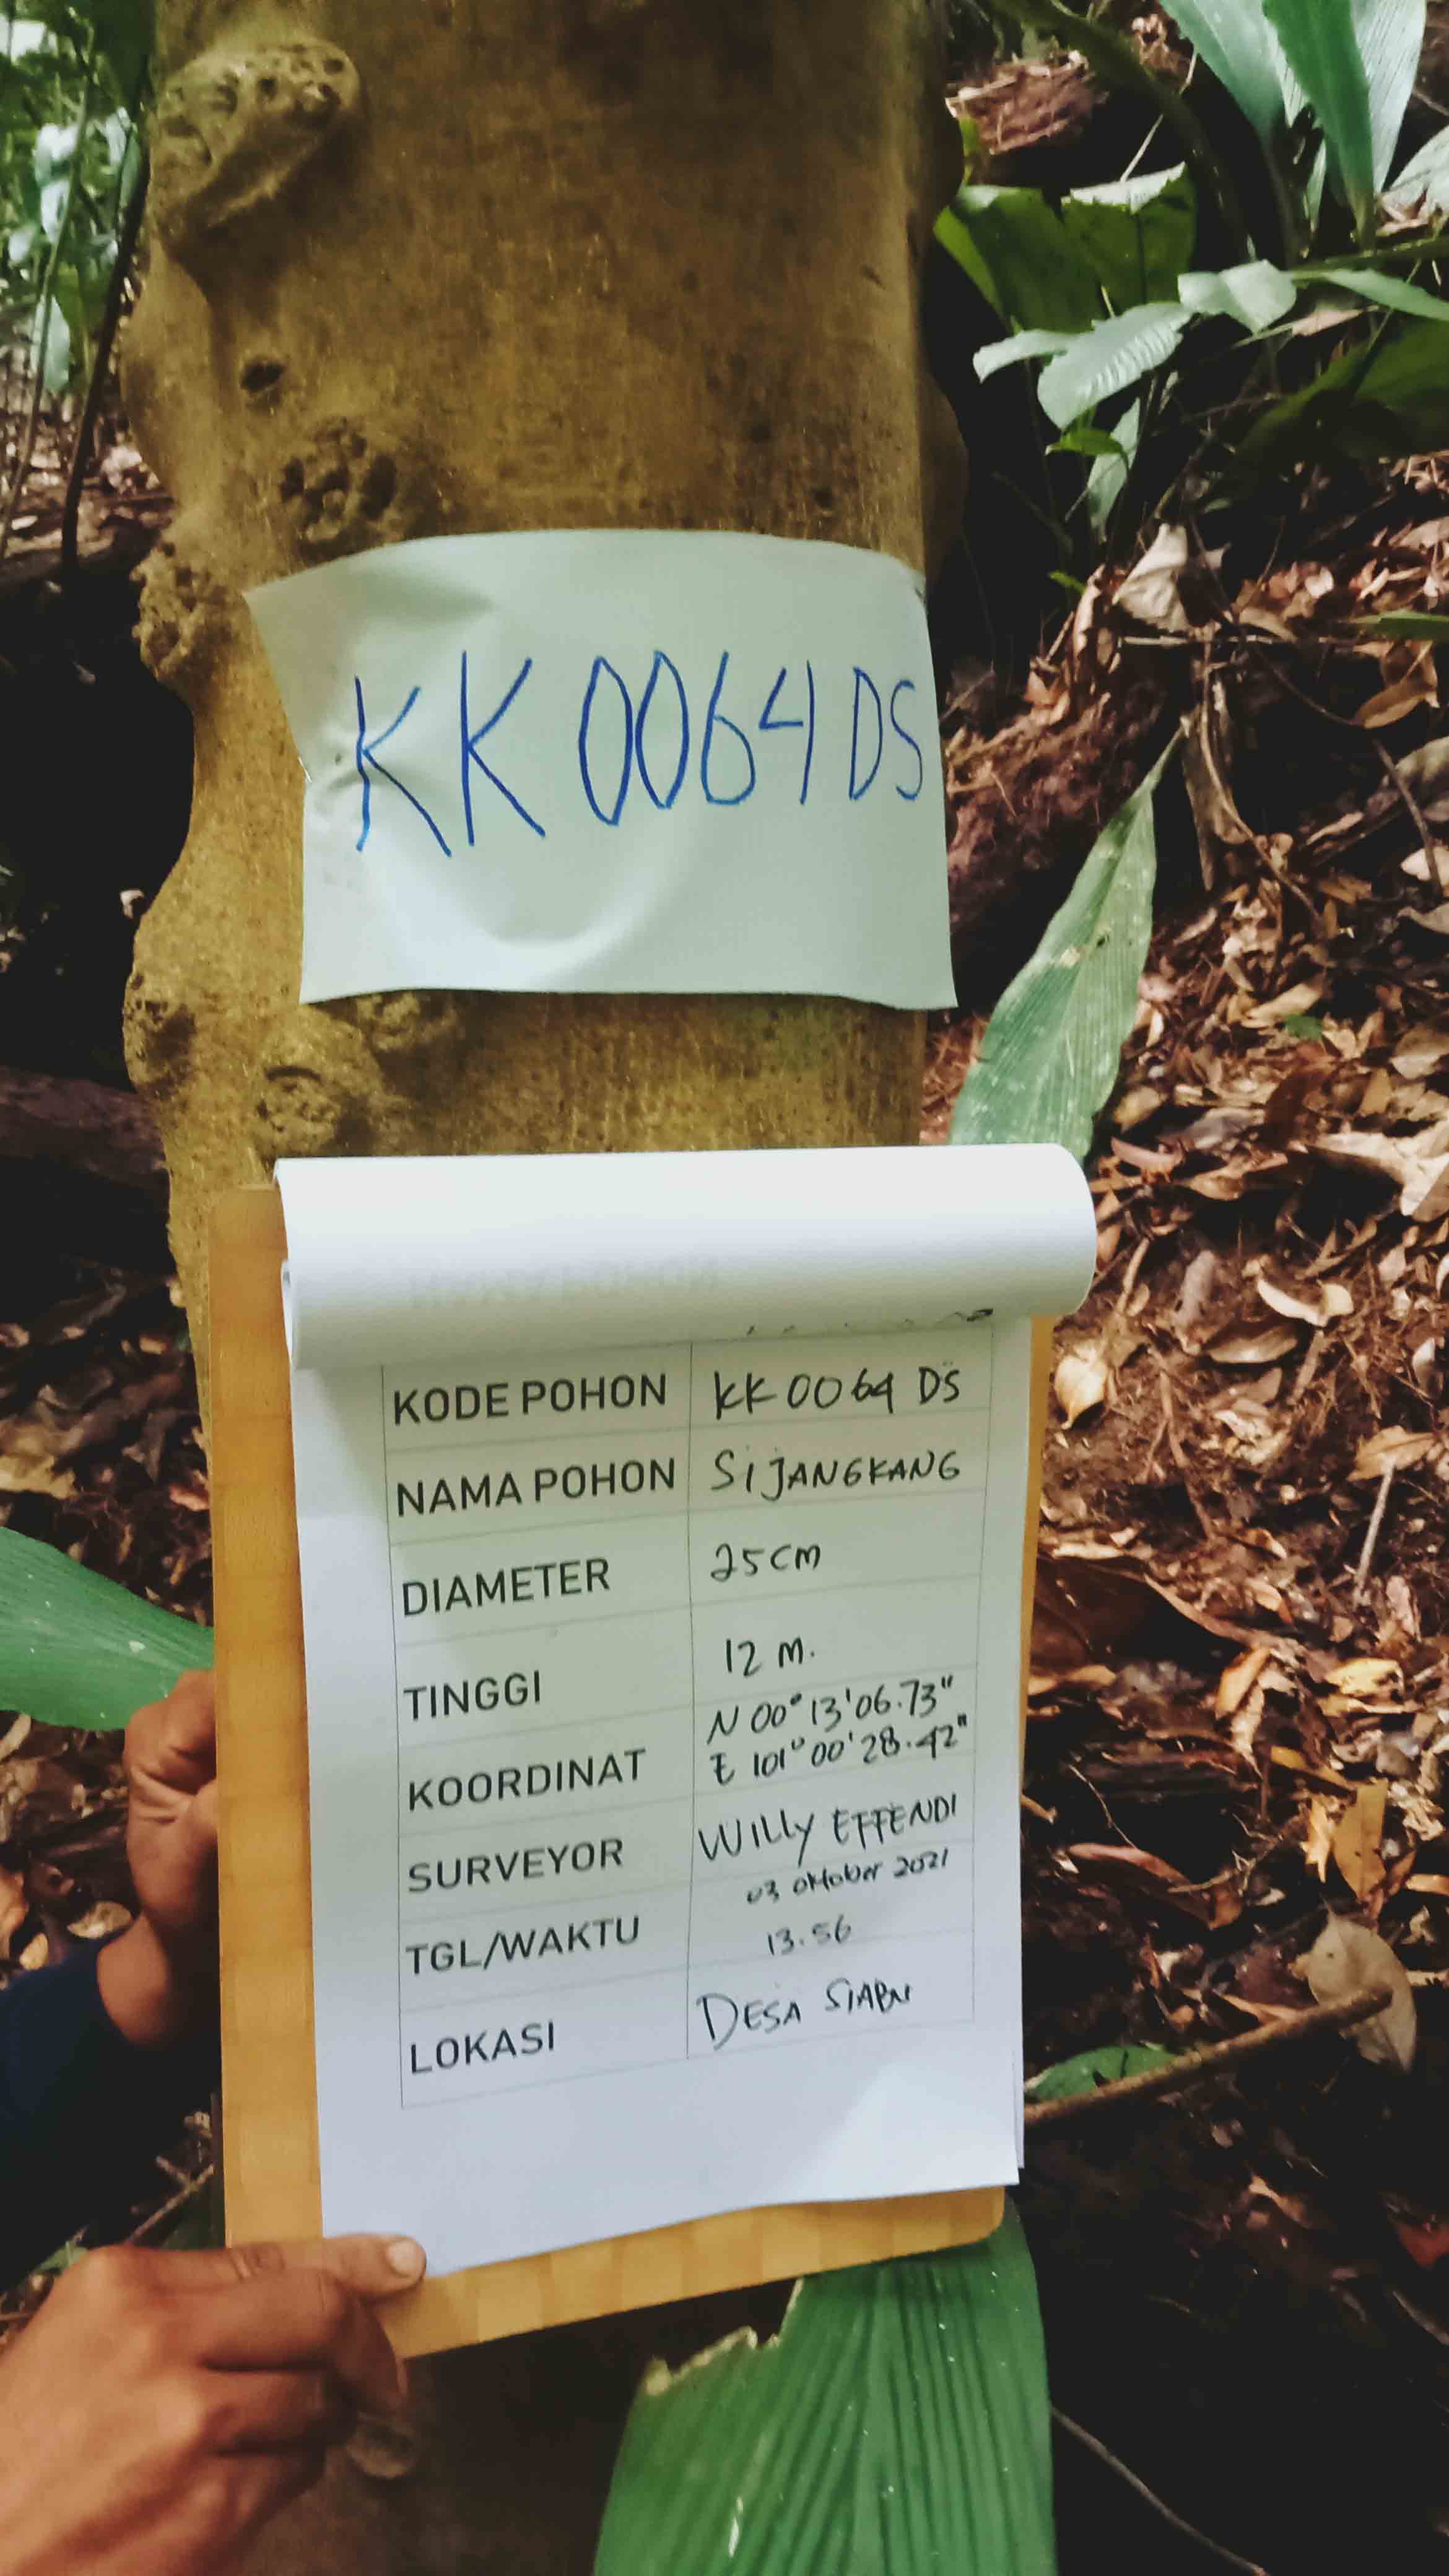 KK 0064 DS
KODE POHON KK 0064 DS
NAMA POHON SiJANGKANG
DIAMETER 25 cm
TINGGI 12 m.
KOORDINAT N 00° 13' 06.73"
E 101° 00' 28.42"
SURVEYOR WILLY EFFENDI
TGL/WAKTU 03 Oktober 2021
13.56
LOKASI DESA